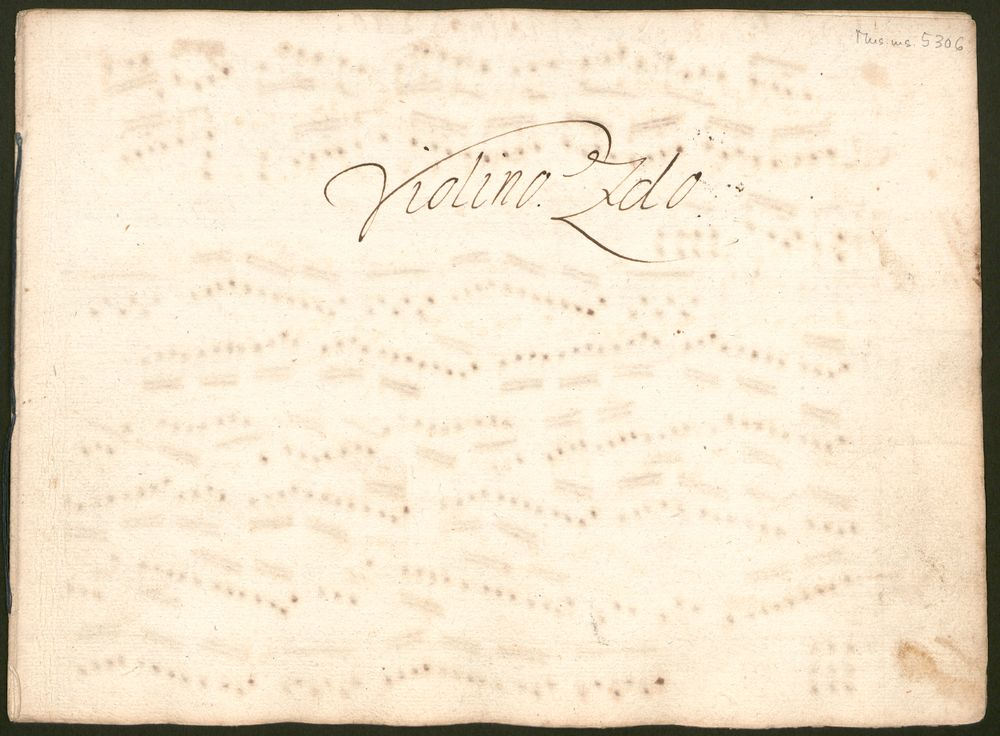 Mus.ms. 5306
Violino. 2do.